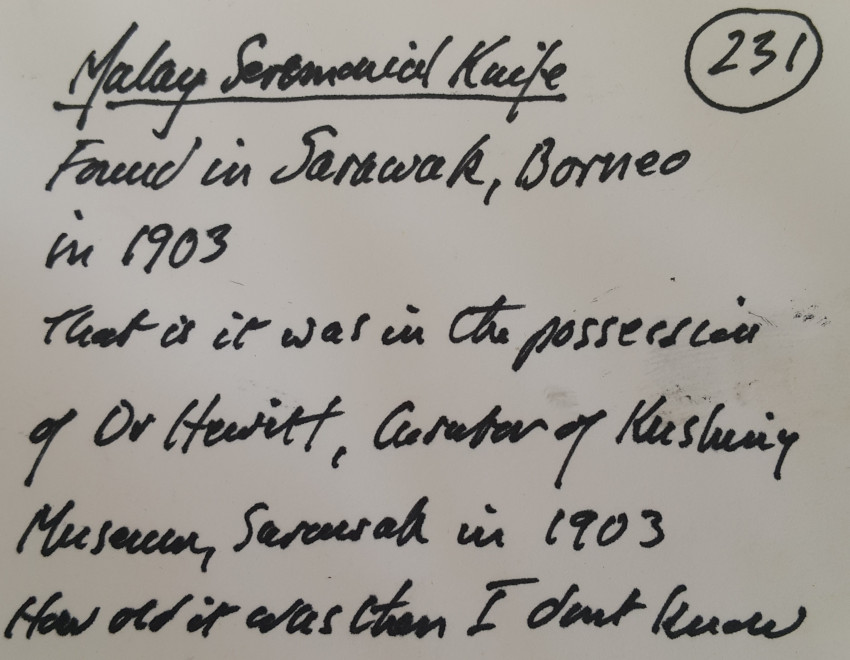 Malay Seremonial Knife 231
Found in Sarawak, Borneo
in 1903
That is it was in the possession
of Dr Hewitt, Curator of Kushing
Museum, Sarawak in 1903
How old it was then I dont know